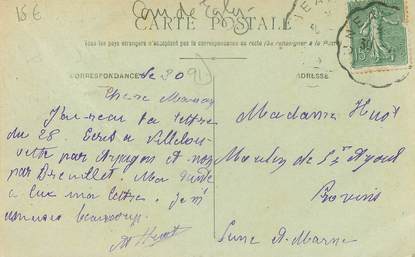 15€
CARTE POSTALE
Tous les pays étrangers n'acceptent pas la correspondance au recto (Se renseigner à la Poste)
CORRESPONDANCE
ADRESSE
Le 30
Chère Maman
J'ai reçu ta lettre
du 28 Ecris à
par Arpajon et non
par Breuillet. Ma
a lu ma lettre. je m'
amuse beaucoup.
M Huot
Madame Huot
Moulin de St Ayoul
Provins
Seine et Marne